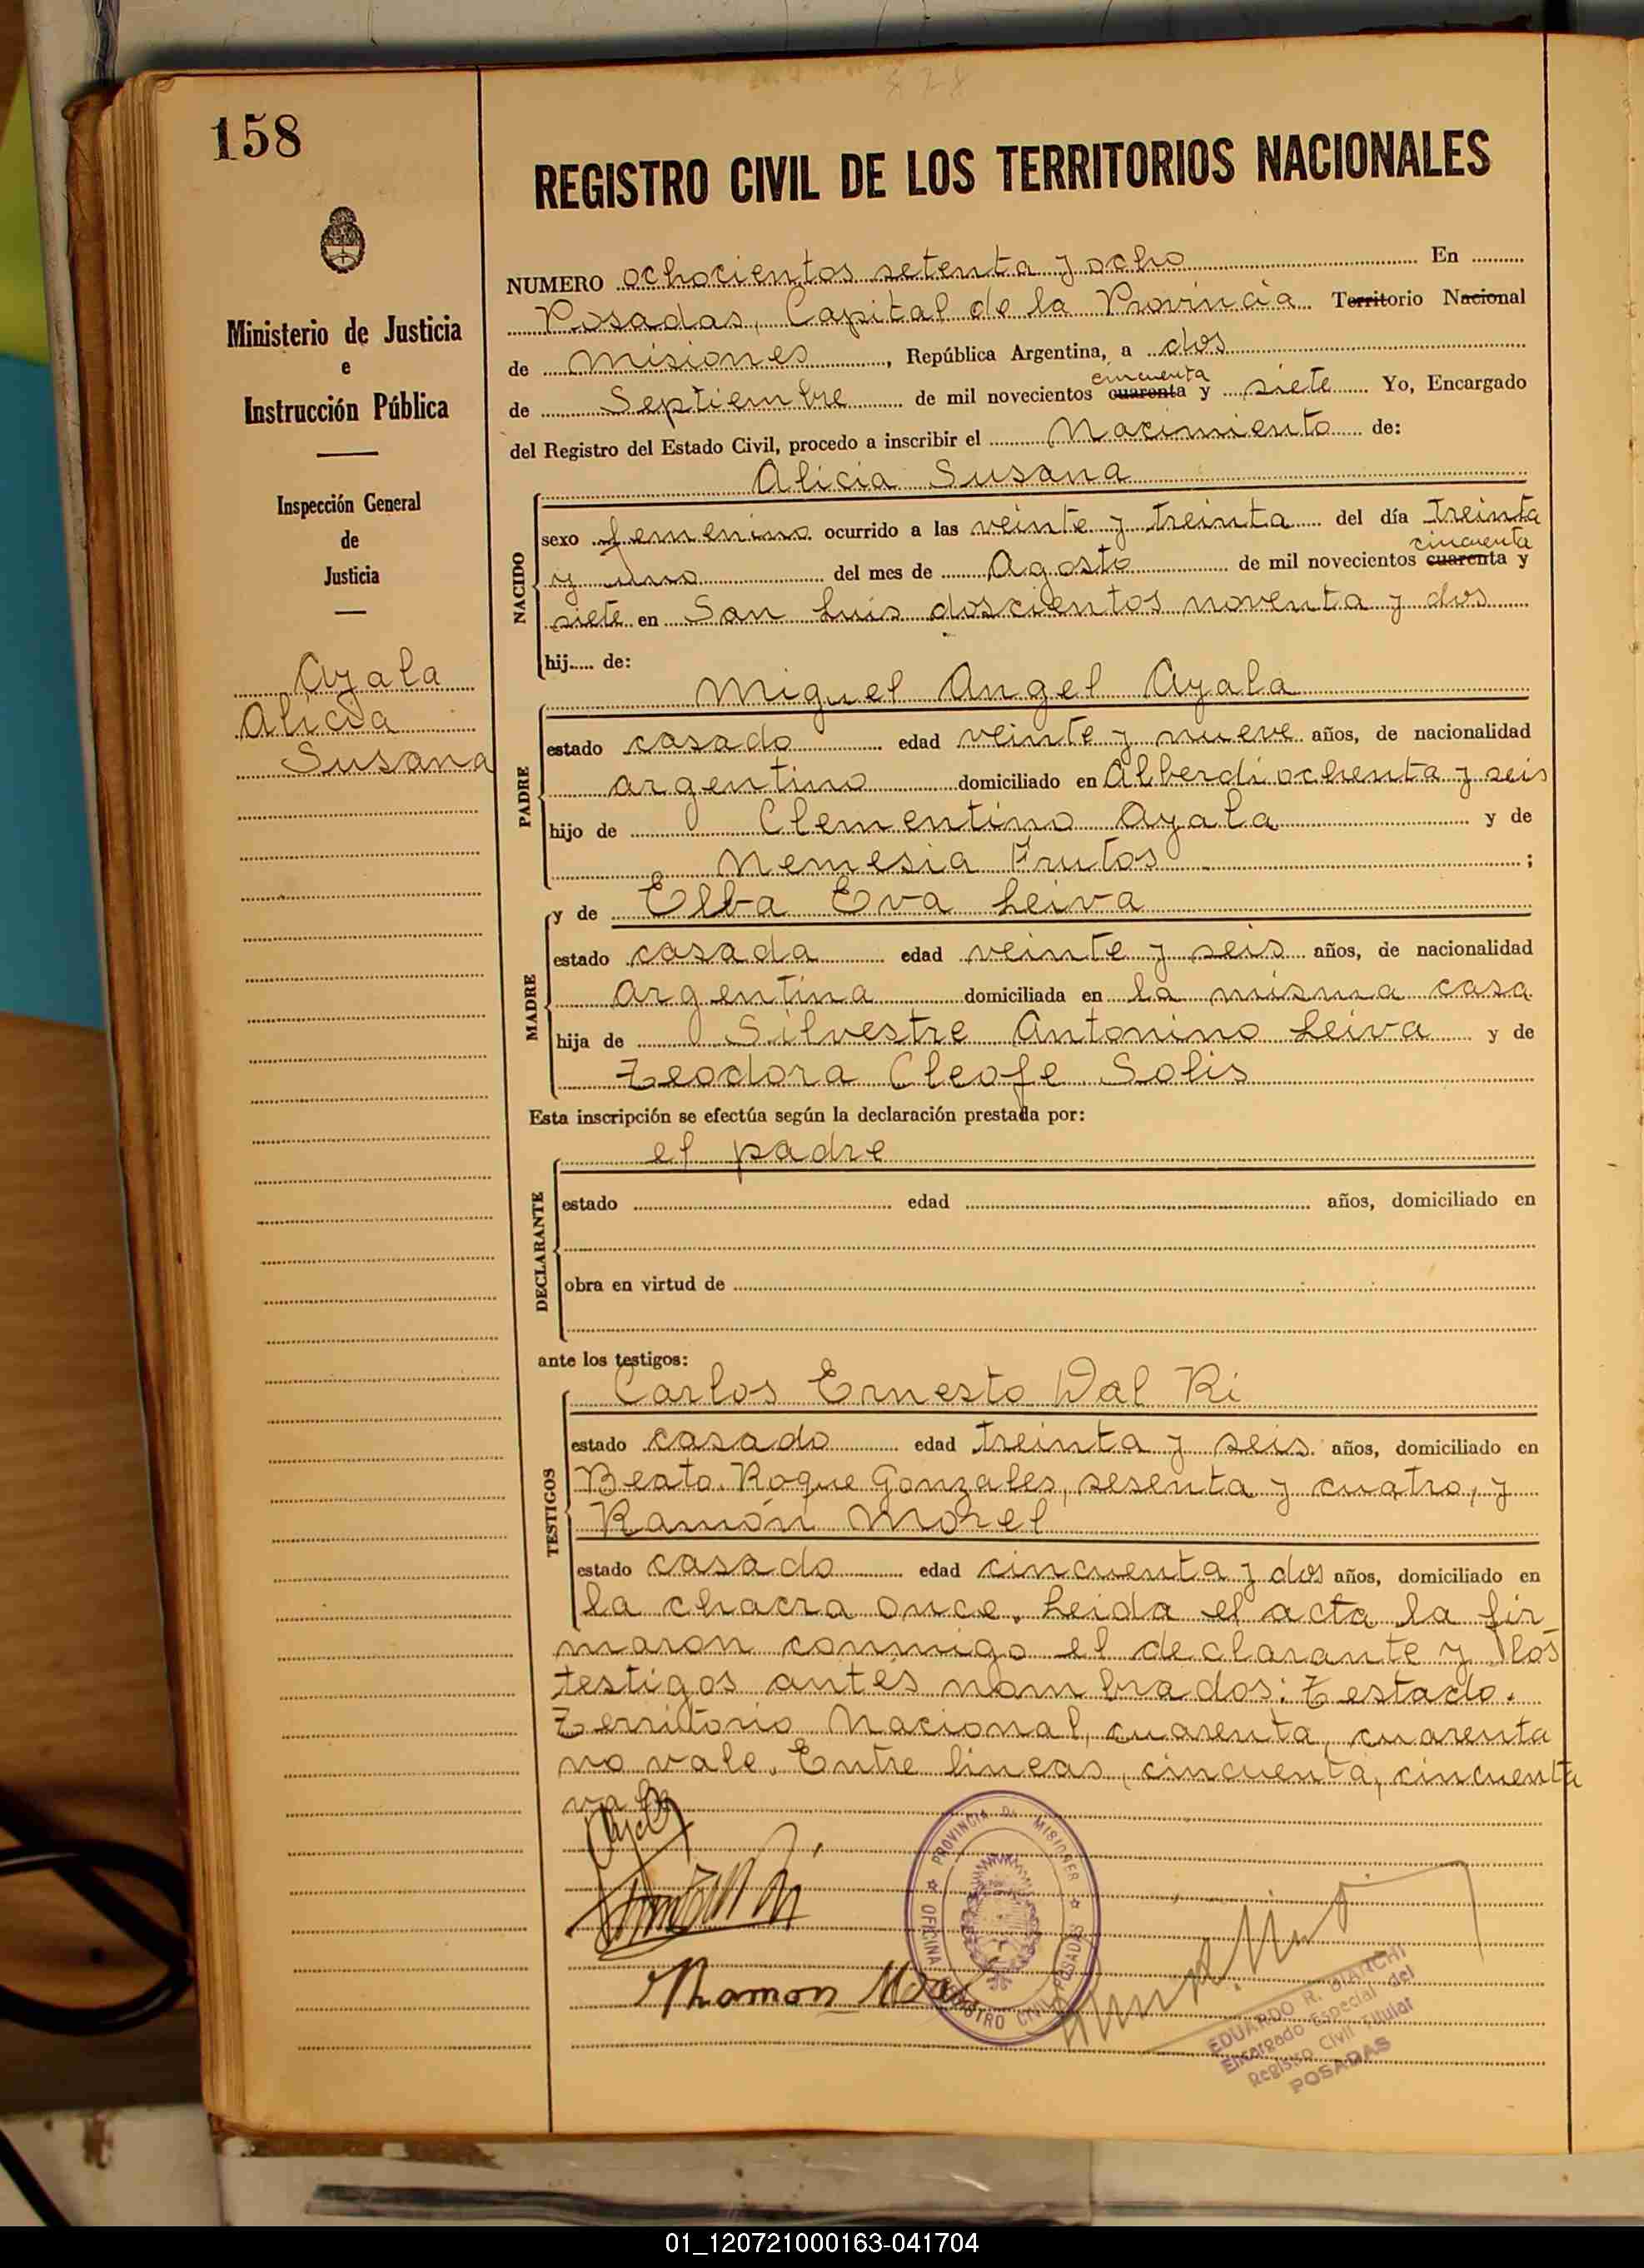 878
158
REGISTRO CIVIL DE LOS TERRITORIOS NACIONALES
Ministerio de Justicia
e
Instrucción Pública
Inspección General
de
Justicia
Ayala
Alicia
Susana
NUMERO ochocientos setenta y ocho En
Posadas, Capital de la Provincia Territorio Nacional
de Misiones, República Argentina, a dos
cincuenta
de Septiembre de mil novecientos cuarenta y siete Yo, Encargado
del Registro del Estado Civil, procedo a inscribir el Nacimiento de:
Alicia Susana
NACIDO
sexo femenino ocurrido a las veinte y treinta del día treinta
cincuenta
y uno del mes de Agosto de mil novecientos cuarenta y
siete en San Luis doscientos noventa y dos
hij.... de:
Miguel Angel Ayala
PADRE
estado casado edad veinte y nueve años, de nacionalidad
argentino domiciliado en Alberdi ochenta y seis
hijo de Clementino Ayala y de
Nemesia Frutos ;
y de Elba Eva Leiva
MADRE
estado casada edad veinte y seis años, de nacionalidad
argentina domiciliada en la misma casa
hija de Silvestre Antonino Leiva y de
Teodora Cleofe Solis
Esta inscripción se efectúa según la declaración prestada por:
el padre
DECLARANTE
estado edad años, domiciliado en
obra en virtud de
ante los testigos:
Carlos Ernesto Dal Ri
TESTIGOS
estado casado edad treinta y seis años, domiciliado en
Beato Roque Gonzales, sesenta y cuatro, y
Ramón Morel
estado casado edad cincuenta y dos años, domiciliado en
la chacra once. Leida el acta la fir
maron conmigo el declarante y los
testigos antes nombrados: Testado.
Territorio Nacional, cuarenta, cuarenta
no vale. Entre lineas, cincuenta, cincuenta
vale
PROVINCIA DE MISIONES
OFICINA REGISTRO CIVIL POSADAS
Ramon
EDUARDO R. BIANCHI
Encargado Especial del
Registro Civil Titular
POSADAS
01_120721000163-041704